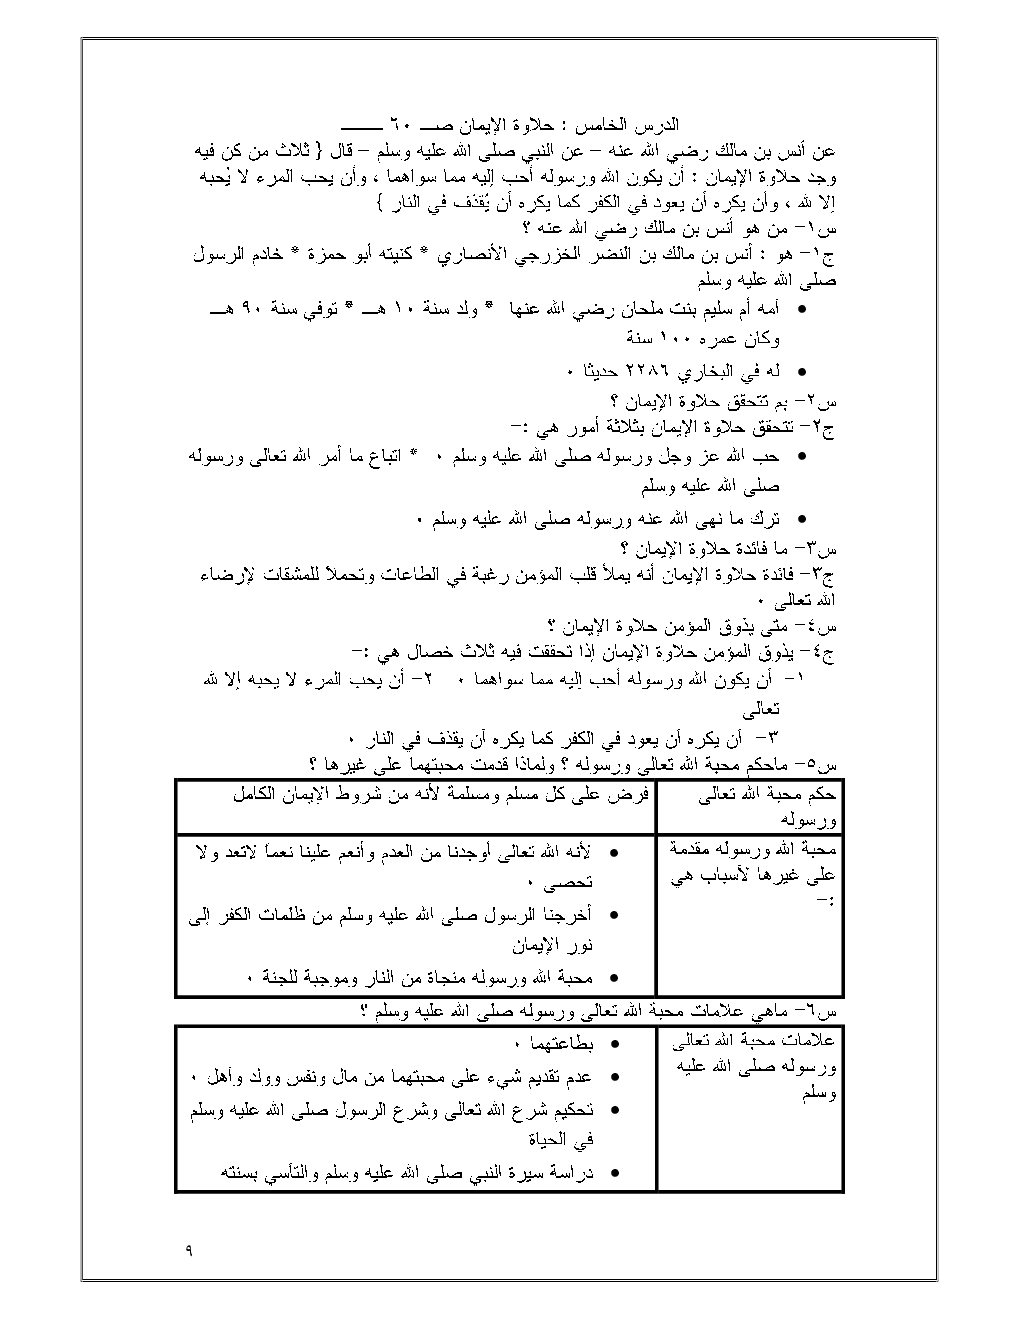 الدرس الخامس : حلاوة الإيمان صـــ ٦٠ ـــــــ
عن أنس بن مالك رضي الله عنه – عن النبي صلى الله عليه وسلم – قال { ثلاث من كن فيه
وجد حلاوة الإيمان : أن يكون الله ورسوله أحب إليه مما سواهما ، وأن يحب المرء لا يُحبه
إلا لله ، وأن يكره أن يعود في الكفر كما يكره أن يُقذف في النار }
س١- من هو أنس بن مالك رضي الله عنه ؟
ج١- هو : أنس بن مالك بن النضر الخزرجي الأنصاري * كنيته أبو حمزة * خادم الرسول
صلى الله عليه وسلم
• أمه أم سليم بنت ملحان رضي الله عنها * ولد سنة ١٠ هـــ * توفي سنة ٩٠ هـــ
وكان عمره ١٠٠ سنة
• له في البخاري ٢٢٨٦ حديثا ٠
س٢- بم تتحقق حلاوة الإيمان ؟
ج٢- تتحقق حلاوة الإيمان بثلاثة أمور هي :-
• حب الله عز وجل ورسوله صلى الله عليه وسلم ٠ * اتباع ما أمر الله تعالى ورسوله
صلى الله عليه وسلم
• ترك ما نهى الله عنه ورسوله صلى الله عليه وسلم ٠
س٣- ما فائدة حلاوة الإيمان ؟
ج٣- فائدة حلاوة الإيمان أنه يملأ قلب المؤمن رغبة في الطاعات وتحملاً للمشقات لإرضاء
الله تعالى ٠
س٤- متى يذوق المؤمن حلاوة الإيمان ؟
ج٤- يذوق المؤمن حلاوة الإيمان إذا تحققت فيه ثلاث خصال هي :-
١- أن يكون الله ورسوله أحب إليه مما سواهما ٠ ٢- أن يحب المرء لا يحبه إلا لله
تعالى
٣- أن يكره أن يعود في الكفر كما يكره أن يقذف في النار ٠
س٥- ماحكم محبة الله تعالى ورسوله ؟ ولماذا قدمت محبتهما على غيرها ؟
حكم محبة الله تعالى
ورسوله
فرض على كل مسلم ومسلمة لأنه من شروط الإيمان الكامل
محبة الله ورسوله مقدمة
على غيرها لأسباب هي
:-
• لأنه الله تعالى أوجدنا من العدم وأنعم علينا نعماً لاتعد ولا
تحصى ٠
• أخرجنا الرسول صلى الله عليه وسلم من ظلمات الكفر إلى
نور الإيمان
• محبة الله ورسوله منجاة من النار وموجبة للجنة ٠
س٦- ماهي علامات محبة الله تعالى ورسوله صلى الله عليه وسلم ؟
علامات محبة الله تعالى
ورسوله صلى الله عليه
وسلم
• بطاعتهما ٠
• عدم تقديم شيء على محبتهما من مال ونفس وولد وأهل ٠
• تحكيم شرع الله تعالى وشرع الرسول صلى الله عليه وسلم
في الحياة
• دراسة سيرة النبي صلى الله عليه وسلم والتأسي بسنته
٩